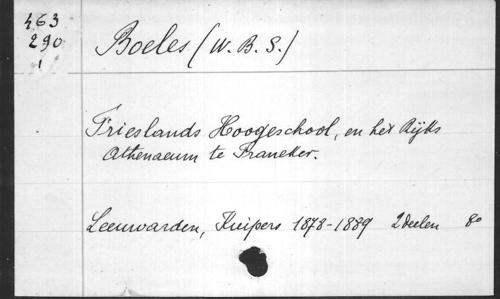 463
290
1
Boeles (W. B. S.)
Frieslands Hoogeschool, en het Rijks
Athenaeum te Franeker.
Leeuwarden, Kuipers 1878-1889 2 deelen 8o